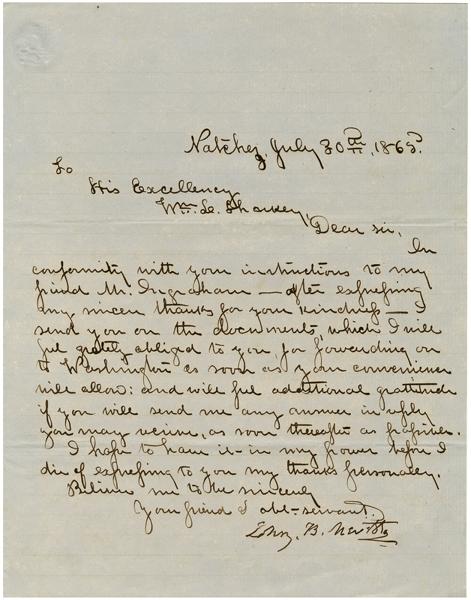 Natchez, July 30th, 1865.
To
His Excellency
Wm. L. Sharkey,
Dear sir,
In
conformity with your instructions to my
friend Mr. Ingraham — after expressing
my sincere thanks for your kindness — I
send you on the documents, which I will
feel greatly obliged to you, for forwarding on
to Washington as soon as your convenience
will allow: and will feel additional gratitude
if you will send me any answer in reply
you may receive, as soon thereafter as possible.
I hope to have it in my power before I
die of expressing to you my thanks personally.
Believe me to be sincerely
Your friend & obt-servant.
B.